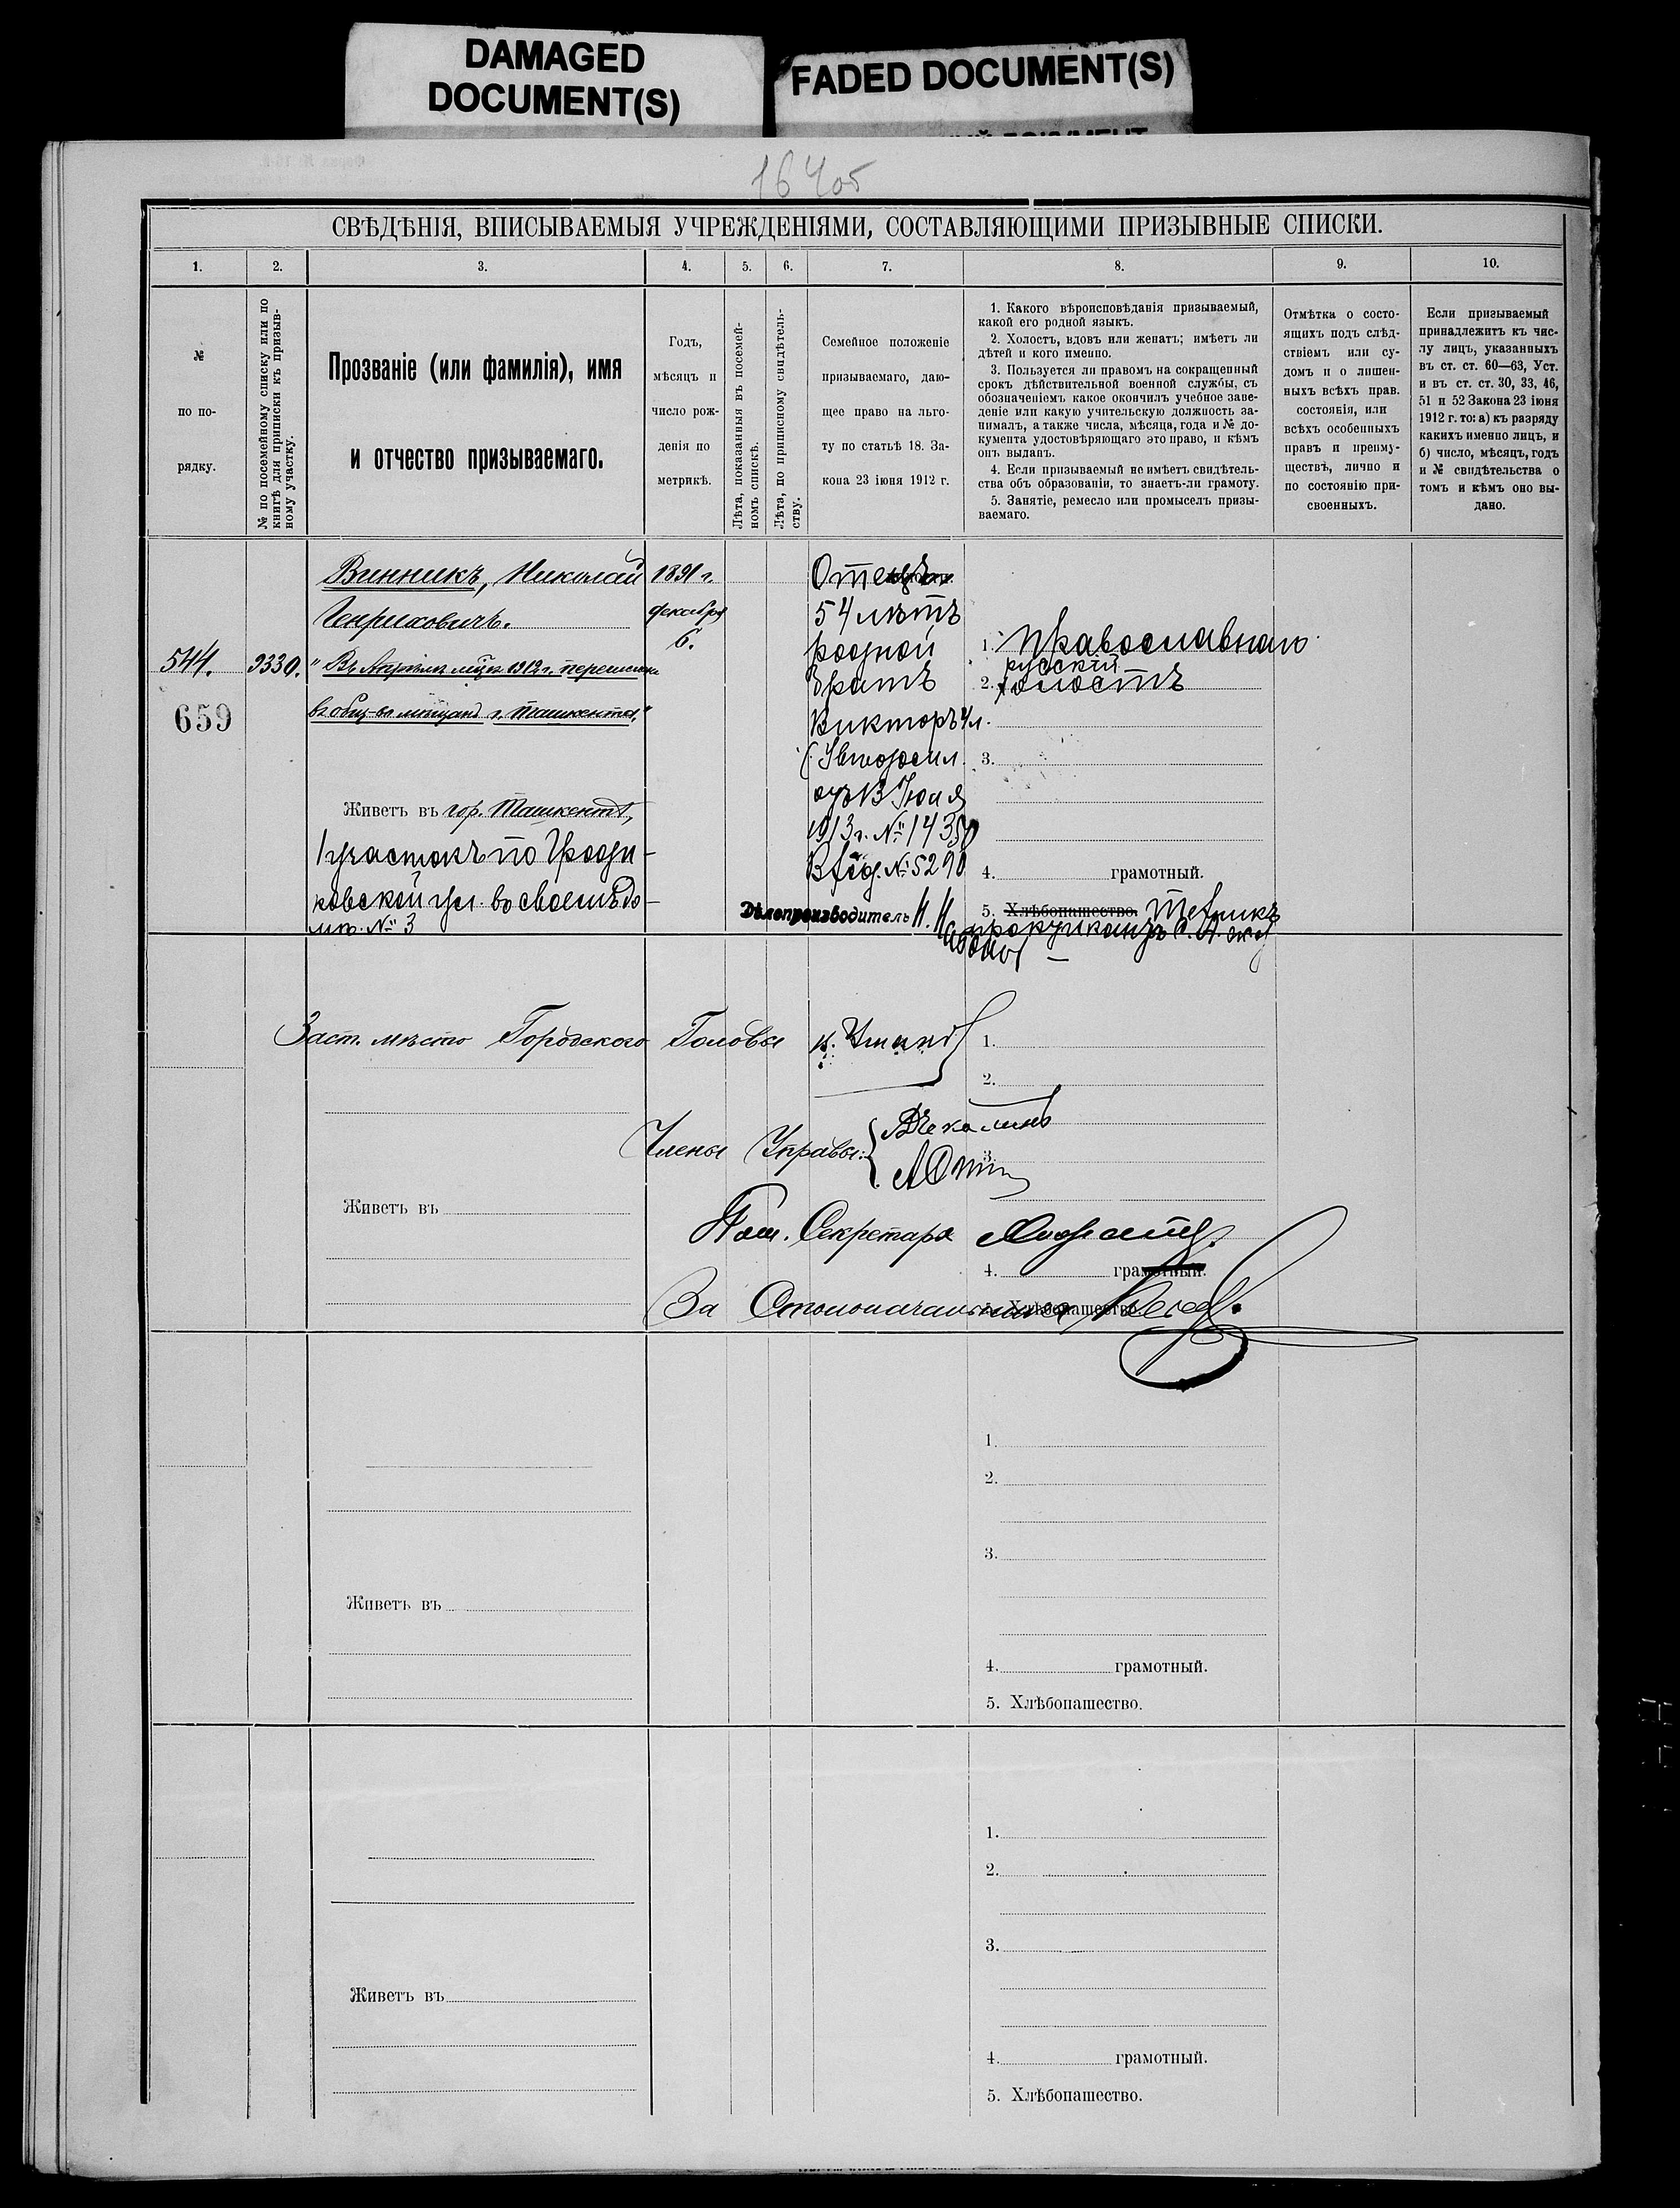 DAMAGED
DOCUMENT(S)
FADED DOCUMENT(S)
164об
СВѢДѢНІЯ, ВПИСЫВАЕМЫЯ УЧРЕЖДЕНІЯМИ, СОСТАВЛЯЮЩИМИ ПРИЗЫВНЫЕ СПИСКИ.
1. 2. 3. 4. 5. 6. 7. 8. 9. 10.
№
по по-
рядку.
№ по посемейному списку или по
книгѣ для приписки къ призыв-
ному участку.
Прозваніе (или фамилія), имя
и отчество призываемаго.
Годъ,
мѣсяцъ и
число рож-
денія по
метрикѣ.
Лѣта, показанныя въ посемей-
номъ спискѣ.
Лѣта, по приписному свидѣтель-
ству.
Семейное положеніе
призываемаго, даю-
щее право на льго-
ту по статьѣ 18. За-
кона 23 іюня 1912 г.
1. Какого вѣроисповѣданія призываемый,
какой его родной языкъ.
2. Холостъ, вдовъ или женатъ; имѣетъ ли
дѣтей и кого именно.
3. Пользуется ли правомъ на сокращенный
срокъ дѣйствительной военной службы, съ
обозначеніемъ какое окончилъ учебное заве-
деніе или какую учительскую должность за-
нималъ, а также числа, мѣсяца, года и № до-
кумента удостовѣряющаго это право, и кѣмъ
онъ выданъ.
4. Если призываемый не имѣетъ свидѣтель-
ства объ образованіи, то знаетъ-ли грамоту.
5. Занятіе, ремесло или промыселъ призы-
ваемаго.
Отмѣтка о состо-
ящихъ подъ слѣд-
ствіемъ или су-
домъ и о лишен-
ныхъ всѣхъ прав.
состоянія, или
всѣхъ особенныхъ
правъ и преиму-
ществъ, лично и
по состоянію при-
своенныхъ.
Если призываемый
принадлежитъ къ чис-
лу лицъ, указанныхъ
въ ст. ст. 60—63, Уст.
и въ ст. ст. 30, 33, 46,
51 и 52 Закона 23 іюня
1912 г. то: а) къ разряду
какихъ именно лицъ, и
б) число, мѣсяцъ, годъ
и № свидѣтельства о
томъ и кѣмъ оно вы-
дано.
544.
659
9330.
Винникъ, Николай
Генриховичъ.
"Въ Апрѣлѣ мѣс. 1912 г. перечислен
въ общ-во мѣщанъ г. Ташкента."
Живетъ въ гор. Ташкентѣ,
1 участокъ по
ковской ул. во своемъ до-
мѣ. № 3
1891 г.
декабря
6.
Отецъ
54 лѣтъ
родной
братъ
Викторъ 4 л.
отъ 13 Іюля
1913 г. № 14350
Вход. № 5290
Дѣлопроизводитель
1. Православнаго
русскій
2. холостъ
3.
4. грамотный.
5. Хлѣбопашество.
Заст. мѣсто Городского Головы
Члены Управы:
Пом. Секретаря
За Столоначальника
1.
2.
3.
Живетъ въ
4. грамотный.
5. Хлѣбопашество.
1.
2.
3.
Живетъ въ
4. грамотный.
5. Хлѣбопашество.
1.
2.
3.
Живетъ въ
4. грамотный.
5. Хлѣбопашество.